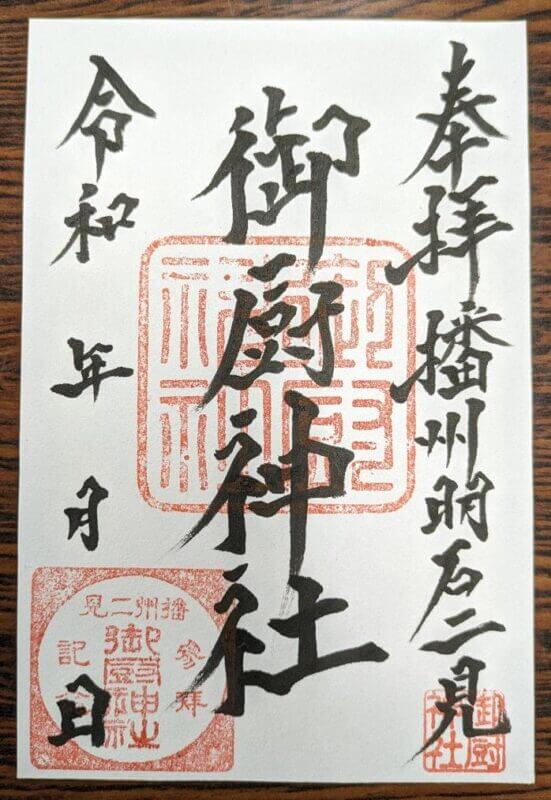 奉拝 播州明石二見
御厨神社
令和 年 月 日
御厨神社
播州二見
参拝
記念
御厨神社
御厨神社